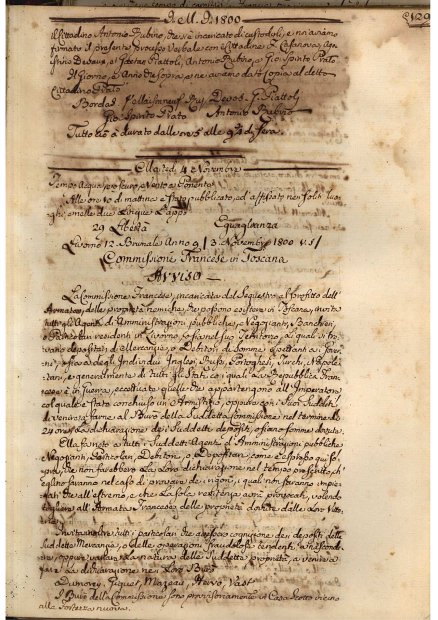 A. M. D. 1800
129
il Cittadino Antonio Rubino, che s'è incaricato di custodirli, e ne abbiamo
firmato il presente Processo Verbale con i Cittadini Casanova,
Piattoli, Antonio Rubino, e Gio Spirito Prato
Il Giorno, e Anno che sopra, e ne abbiamo dato Copia al detto
Cittadino Prato
Bordas Piattoli
Gio: Spirito Prato Antonio Rubino
Tutto ciò è durato dalle ore 5 alle 9 di sera
Martedì 4 Novembre
Tempo Acqua, e oscuro, Vento a Ponente
Alle ore 10 di mattina è stato pubblicato, ed affissato nei soliti luo-
ghi, e nelle due Lingue l'apposto
29 Libertà Eguaglianza
Livorno 12 Brumale Anno 9 / 3 Novembre 1800 v. s/
Commissione Francese in Toscana
Avviso
La Commissione Francese, incaricata del Sequestro al profitto dell'
Armata, delle proprietà nemiche, che possono esistere in Toscana, invita
tutti gli Agenti di Amministrazioni pubbliche, Negozianti, Banchieri,
o Particolari residenti in Livorno, o sia nel suo Territorio, i quali si tro-
vano depositari di Mercanzie, o Debitori di Somme spettanti a i
Individui Inglesi, Russi, Portoghesi, Turchi, Napole-
tani, e generalmente di tutti gli Stati con i quali La Repubblica Fran-
cese è in Guerra, eccettuate quelle che appartengono all'Imperatore
col quale è stato concluso un Armistizio, oppure ai Suoi Sudditi,
di venire a farne al Buro della Suddetta Commissione nel termine di
24 ore la dichiarazione dei Suddetti depositi, o siano somme dovute.
Ella fa noto a tutti i Suddetti Agenti d'Amministrazioni pubbliche
Negozianti, Particolari, Debitori, o Depositari, come è espresso qui so-
pra, che non farebbero La Loro dichiarazione nel tempo prescritto, ch'
eglino saranno nel caso di
all'estremo, e che La sola resistenza avrà provocati, volendo
togliere all'Armata Francese delle proprietà dovute dalle Loro Vitto-
rie.
Invita inoltre tutti i particolari che avessero cognizione dei depositi delle
Suddette Mercanzie, o delle operazioni fraudolose tendenti a nascondere
oppure la natura delle Suddette proprietà, a venire a
fare La dichiarazione nei Loro Buro
Dumorey, Giquet, Mazeau, Hervo, Vast
I Buro della Commissione sono provvisoriamente in Casa vicino
alla Fortezza nuova.